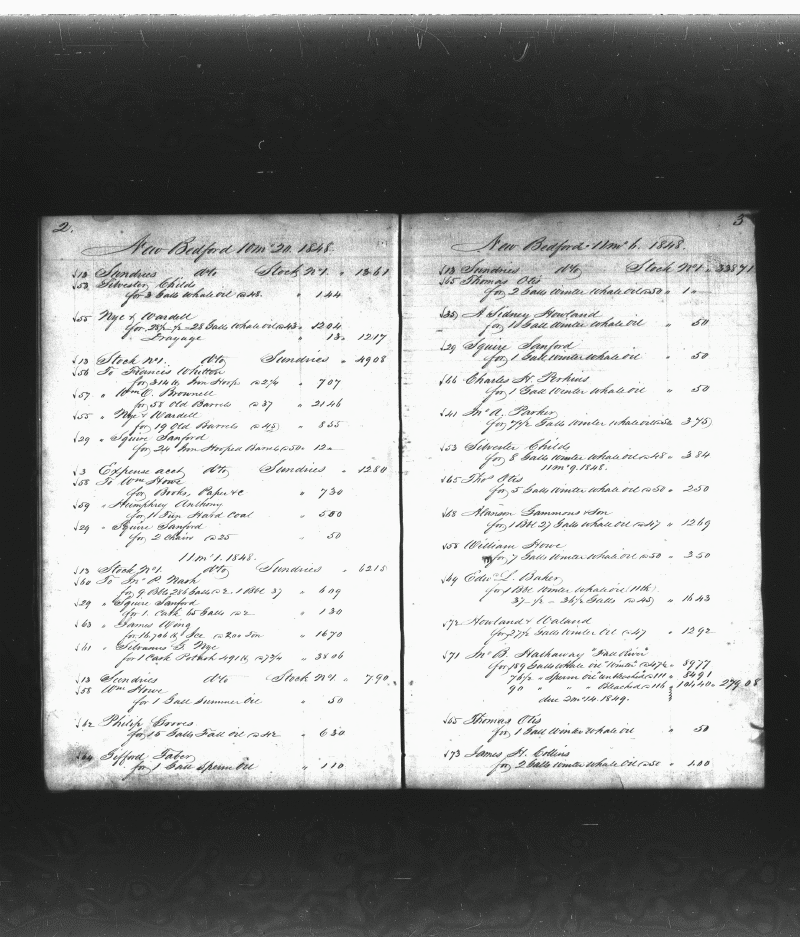 2.
New Bedford 10mo 20. 1848.
√13 Sundries d to Stock No 1. " 1361
√53 Silvester Childs
for 3 Galls Whale Oil @48 " 1.44
√55 Nye & Wardell
for 28/- /2 - 28 Galls Whale Oil @43 " 1204
Drayage " 13 " 1217
√13 Stock No 1. d to Sundries " 4908
√56 To Francis Whitton
for 314 lb Iron Hoop @2 1/4 " 707
√57 " Wm C. Brownell
for 58 Old Barrels @37 " 2146
√55 " Nye & Wardell
for 19 Old Barrels @45 " 855
√29 " Squire Sanford
for 24 Iron Hooped Barrels @50 " 12 "
√3 Expense acct d to Sundries " 1280
√58 To Wm Howe
for Books, Paper &c " 730
√59 " Humphrey Anthony
for 1 Tun Hard Coal " 500
√29 " Squire Sanford
for 2 Chairs @25 " 50
11mo 1. 1848.
√13 Stock No 1. d to Sundries " 6215
√60 To Jno P. Nash
for 9 Bbls 286 Galls @2. 1 Bbl 37 " 609
√29 " Squire Sanford
for 1 Cask 65 Galls @2 " 130
√63 " James Wing
for 16,706 lb Ice @2.00 Ton " 1670
√61 " Silvanus G. Nye
for 1 Cask Potash 491 lb @7 3/4 " 3806
√13 Sundries d to Stock No 1 " 790
√58 Wm Howe
for 1 Gall Summer Oil " 50
√62 Philip
for 15 Galls Fall Oil @42 " 630
√64 Gifford Taber
for 1 Gall Sperm Oil " 110
3
New Bedford 11mo 6. 1848.
√13 Sundries d to Stock No 1. " 33871
√65 Thomas Otis
for 2 Galls Winter Whale Oil @50 " 1 "
√35 A Sidney Howland
for 1 Gall Winter Whale Oil " 50
√29 Squire Sanford
for 1 Gall Winter Whale Oil " 50
√66 Charles H. Perkins
for 1 Gall Winter Whale Oil " 50
√41 Jno A. Parker
for 7 1/2 Galls Winter Whale Oil @50 " 375
√53 Silvester Childs
for 8 Galls Winter Whale Oil @48 " 384
11mo 9. 1848.
√65 Thos Otis
for 5 Galls Winter Whale Oil @50 " 250
√68 Alanson Gammons & Son
for 1 Bbl 27 Galls Whale Oil @47 " 1269
√58 William Howe
for 7 Galls Winter Whale Oil @50 " 350
√69 Edwd L. Baker
for 1 Bbl Winter Whale Oil (11th)
37 - /2 - 36 1/2 Galls @45 " 1643
√72 Howland & Waland
for 27 1/2 Galls Winter Oil @47 " 1292
√71 Jno B. Hathaway "Fall River"
for 189 Galls Whale Oil "Winter" @47 1/2 " 8977
76 1/2 " Sperm Oil unbleached @111 " 8491
90 " " " Bleached @116 " 10440 " 27908
due 2mo 14. 1849.
√65 Thomas Otis
for 1 Gall Winter Whale Oil " 50
√73 James H. Collins
for 2 Galls Winter Whale Oil @50 " 1.00